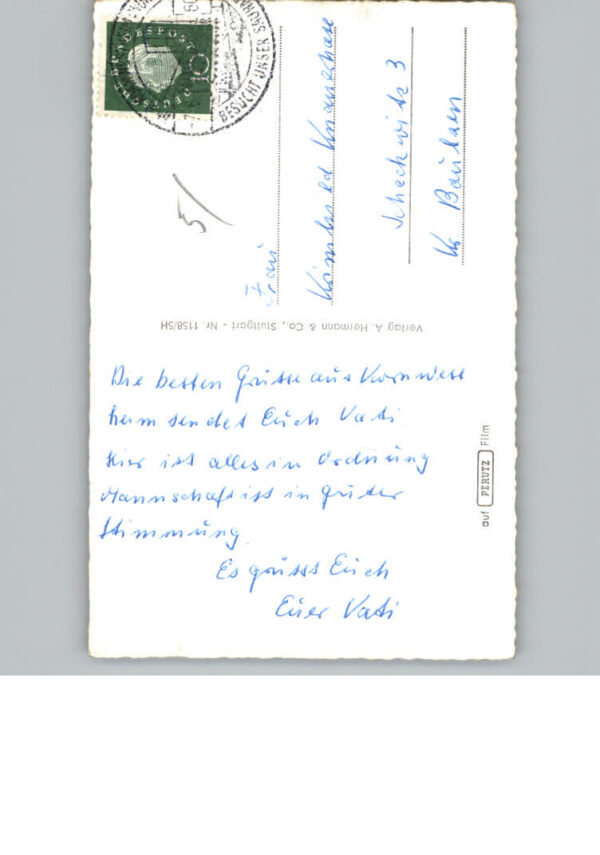 Die besten Grüsse aus Kornwest
heim sendet Euch Vati.
Hier ist alles in Ordnung
Mannschaft ist in guter
Stimmung.
Es grüsst Euch
Euer Vati
Frau
Knauerhase
Scheckwitz 3
Kr Bautzen
Verlag A. Hermann & Co., Stuttgart - Nr. 1158/SH
auf PERUTZ Film
DEUTSCHE BUNDESPOST
10
BESUCHT UNSER
5/